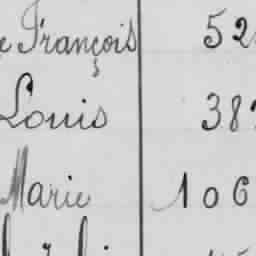 François 52
Louis 38
Marie 106